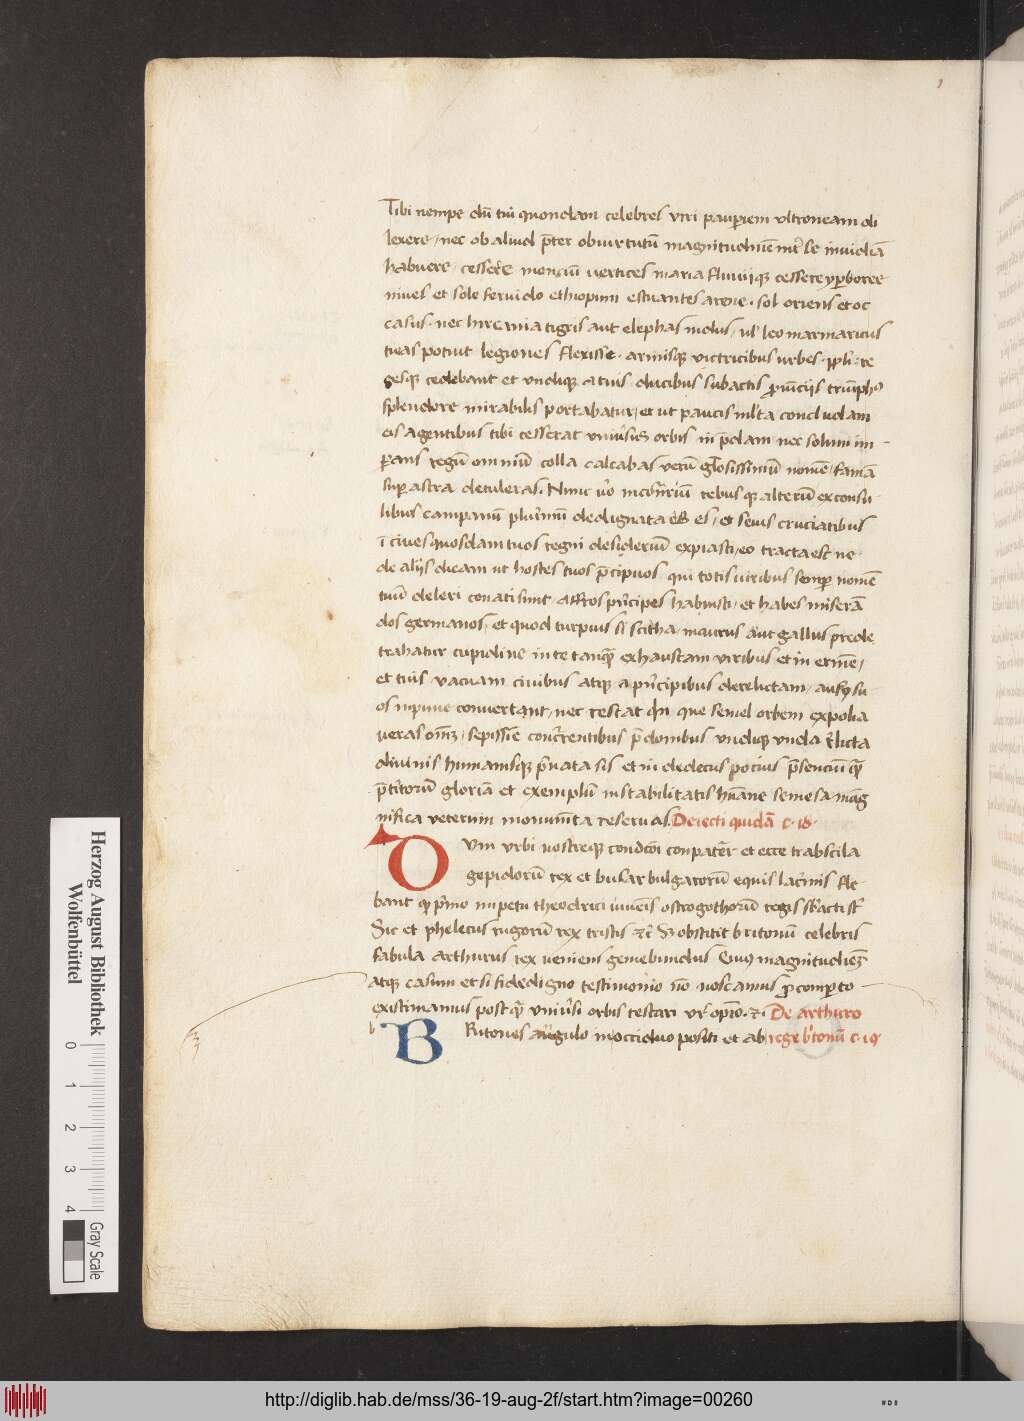 Tibi nempe dū tui quondam celebres viri pauꝑiem vltroneam di
lexere, nec ob aliud p̄ter obuirtutū magnitudinē int̓ se inuidiā
habuere, cessere mencīū vertices maria fluuijqꝫ cessere yꝑboree
niues et sole feruido ethiopum estuantes arene. sol oriens et oc
casus. nec hircania tigris aut elephas indus, vl̓ leo marmaricus
tuas potuit legiones flexisse. armisqꝫ victricibus vrbes. ppl̓i. re
gesqꝫ cedebant et vndiqꝫ a tuis ducibus subactis ꝓuīcijs triūpho
splendore mirabilis portabatur, et ut paucis ml̓ta concludam
eis agentibus tibi cesserat vniūsus orbis in p̄dam nec solum im-
ꝑans regū omniū colla calcabas verū gl̓osissimū nomē, famā
suꝑ astra detuleras. Nunc v̓o in rebusqꝫ alterū ex consu
libus campanū plurimū dedignata es, et seuis cruciatibus
ī ciues quosdam tuos regni desideriū expiasti, eo tracta est ne
de alijs dicam ut hostes tuos p̄cipuos. qui totis viribus semꝑ nomē
tuū deleri conati sunt. affros prīcipes habuisti, et habes miserā
dos germanos, et quod turpius si scitha, maurus aut gallus prede
trahatur cupidine in te tanqꝫ̄ exhaustam viribus et in ermē,
et tuis vacuam ciuibus atqꝫ a prīcipibus derelictam, ausꝫ su
os inpune conuertant, nec restat qn̄ que semel orbem expolia
ueras om̄ꝫ, sepissīe concurrentibus p̄donibus vndiqꝫ vnda r̓licta
diuinis humanisqꝫ pr̄uata sis et in dedecus pocius p̄senciū qꝫ̄
p̄t̓itorū gloriā et exemplū instabilitatis hūane semesa mag
nifica veterum monumīta reseruas. Deiecti quidā c. 18.
OVm vrbi nostreqꝫ condcōi conpater̄ et ecce trabstila
gepidorū rex et busar bulgarorū equis lacrimis fle
bant qꝫ primo impetu theodrici iuuēis ostrogothorū regis st̓
Sic et pheletus rugorū rex tristis ⁊c̓ Sꝫ obstitit britonū celebris
fabula arthurus rex veniens gemebundus Cuiꝰ magnitudinēꝫ
atqꝫ casum et si fidedigno testimonio nō noscamus ꝓ comꝑto
existimamus postqꝫ̄ vniūsi orbis testari vr̓ opīo. ⁊c̓ De arthuro
b BRitones angulo in occiduo positi et ab rege b̓tonū c. 19
Herzog August Bibliothek
Wolfenbüttel
0 1 2 3 4
Gray Scale
http://diglib.hab.de/mss/36-19-aug-2f/start.htm?image=00260